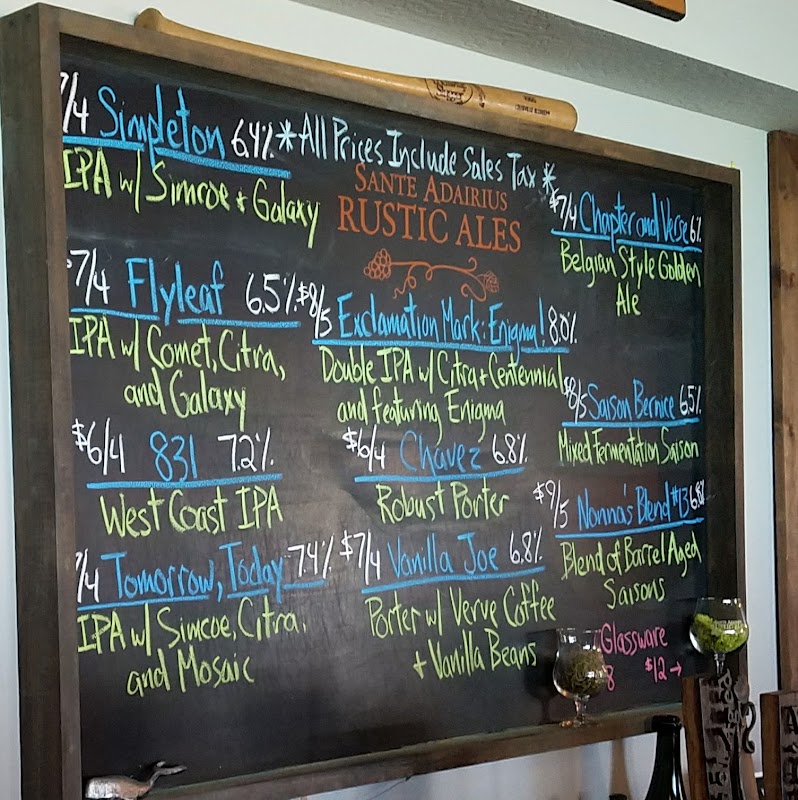 7/4 Simpleton 6.4%
IPA w/ Simcoe + Galaxy
$7/4 Flyleaf 6.5%
IPA w/ Comet, Citra,
and Galaxy
$6/4 831 7.2%
West Coast IPA
7/4 Tomorrow, Today 7.4%
IPA w/ Simcoe, Citra,
and Mosaic
*All Prices Include Sales Tax*
SANTE ADAIRIUS
RUSTIC ALES
$8/5 Exclamation Mark: Enigma! 8.0%
Double IPA w/ Citra + Centennial
and featuring Enigma
$6/4 Chavez 6.8%
Robust Porter
$7/4 Vanilla Joe 6.8%
Porter w/ Verve Coffee
+ Vanilla Beans
$7/4 Chapter and Verse 6%
Belgian Style Golden
Ale
$8/5 Saison Bernice 6.5%
Mixed Fermentation Saison
$9/5 Nonna's Blend #13 6.8%
Blend of Barrel Aged
Saisons
Glassware
8 $12→